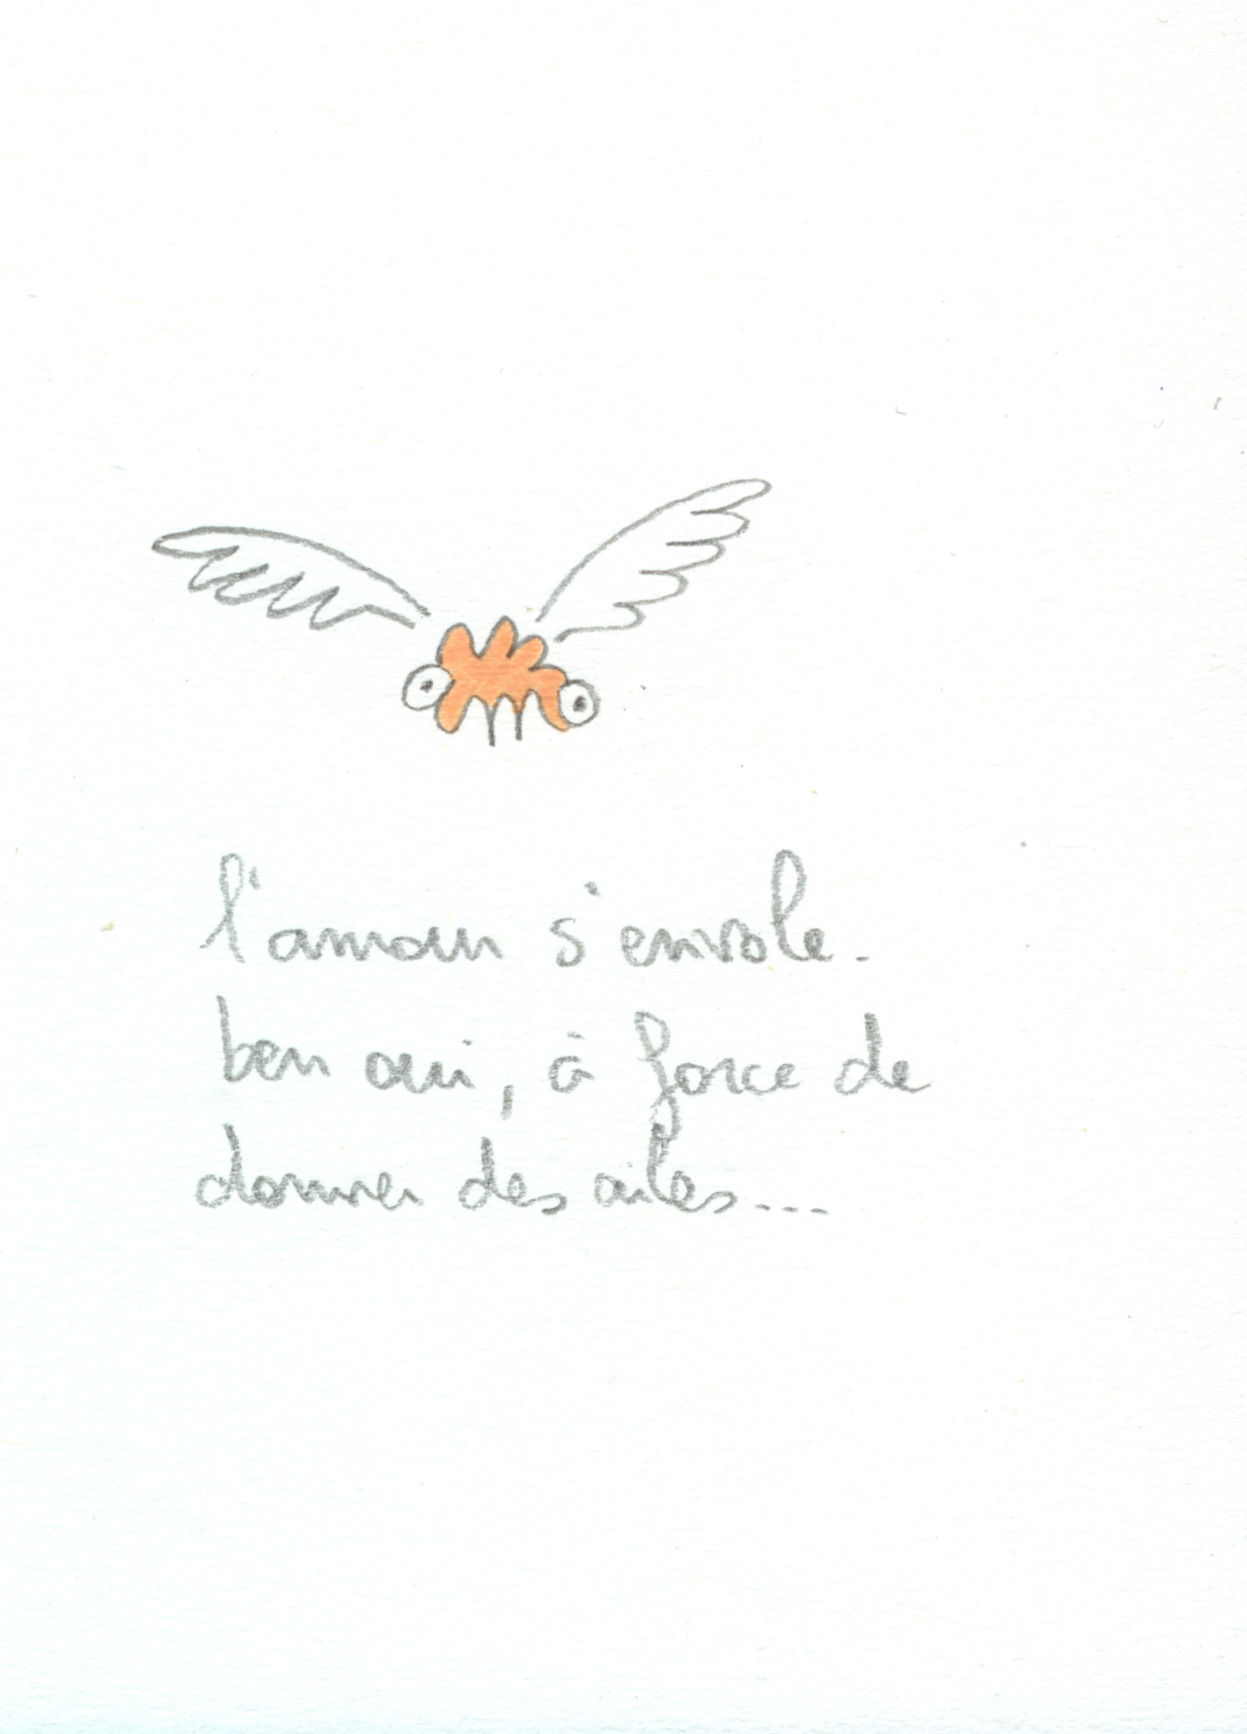 l'amour s'envole.
ben oui, à force de
donner des ailes...